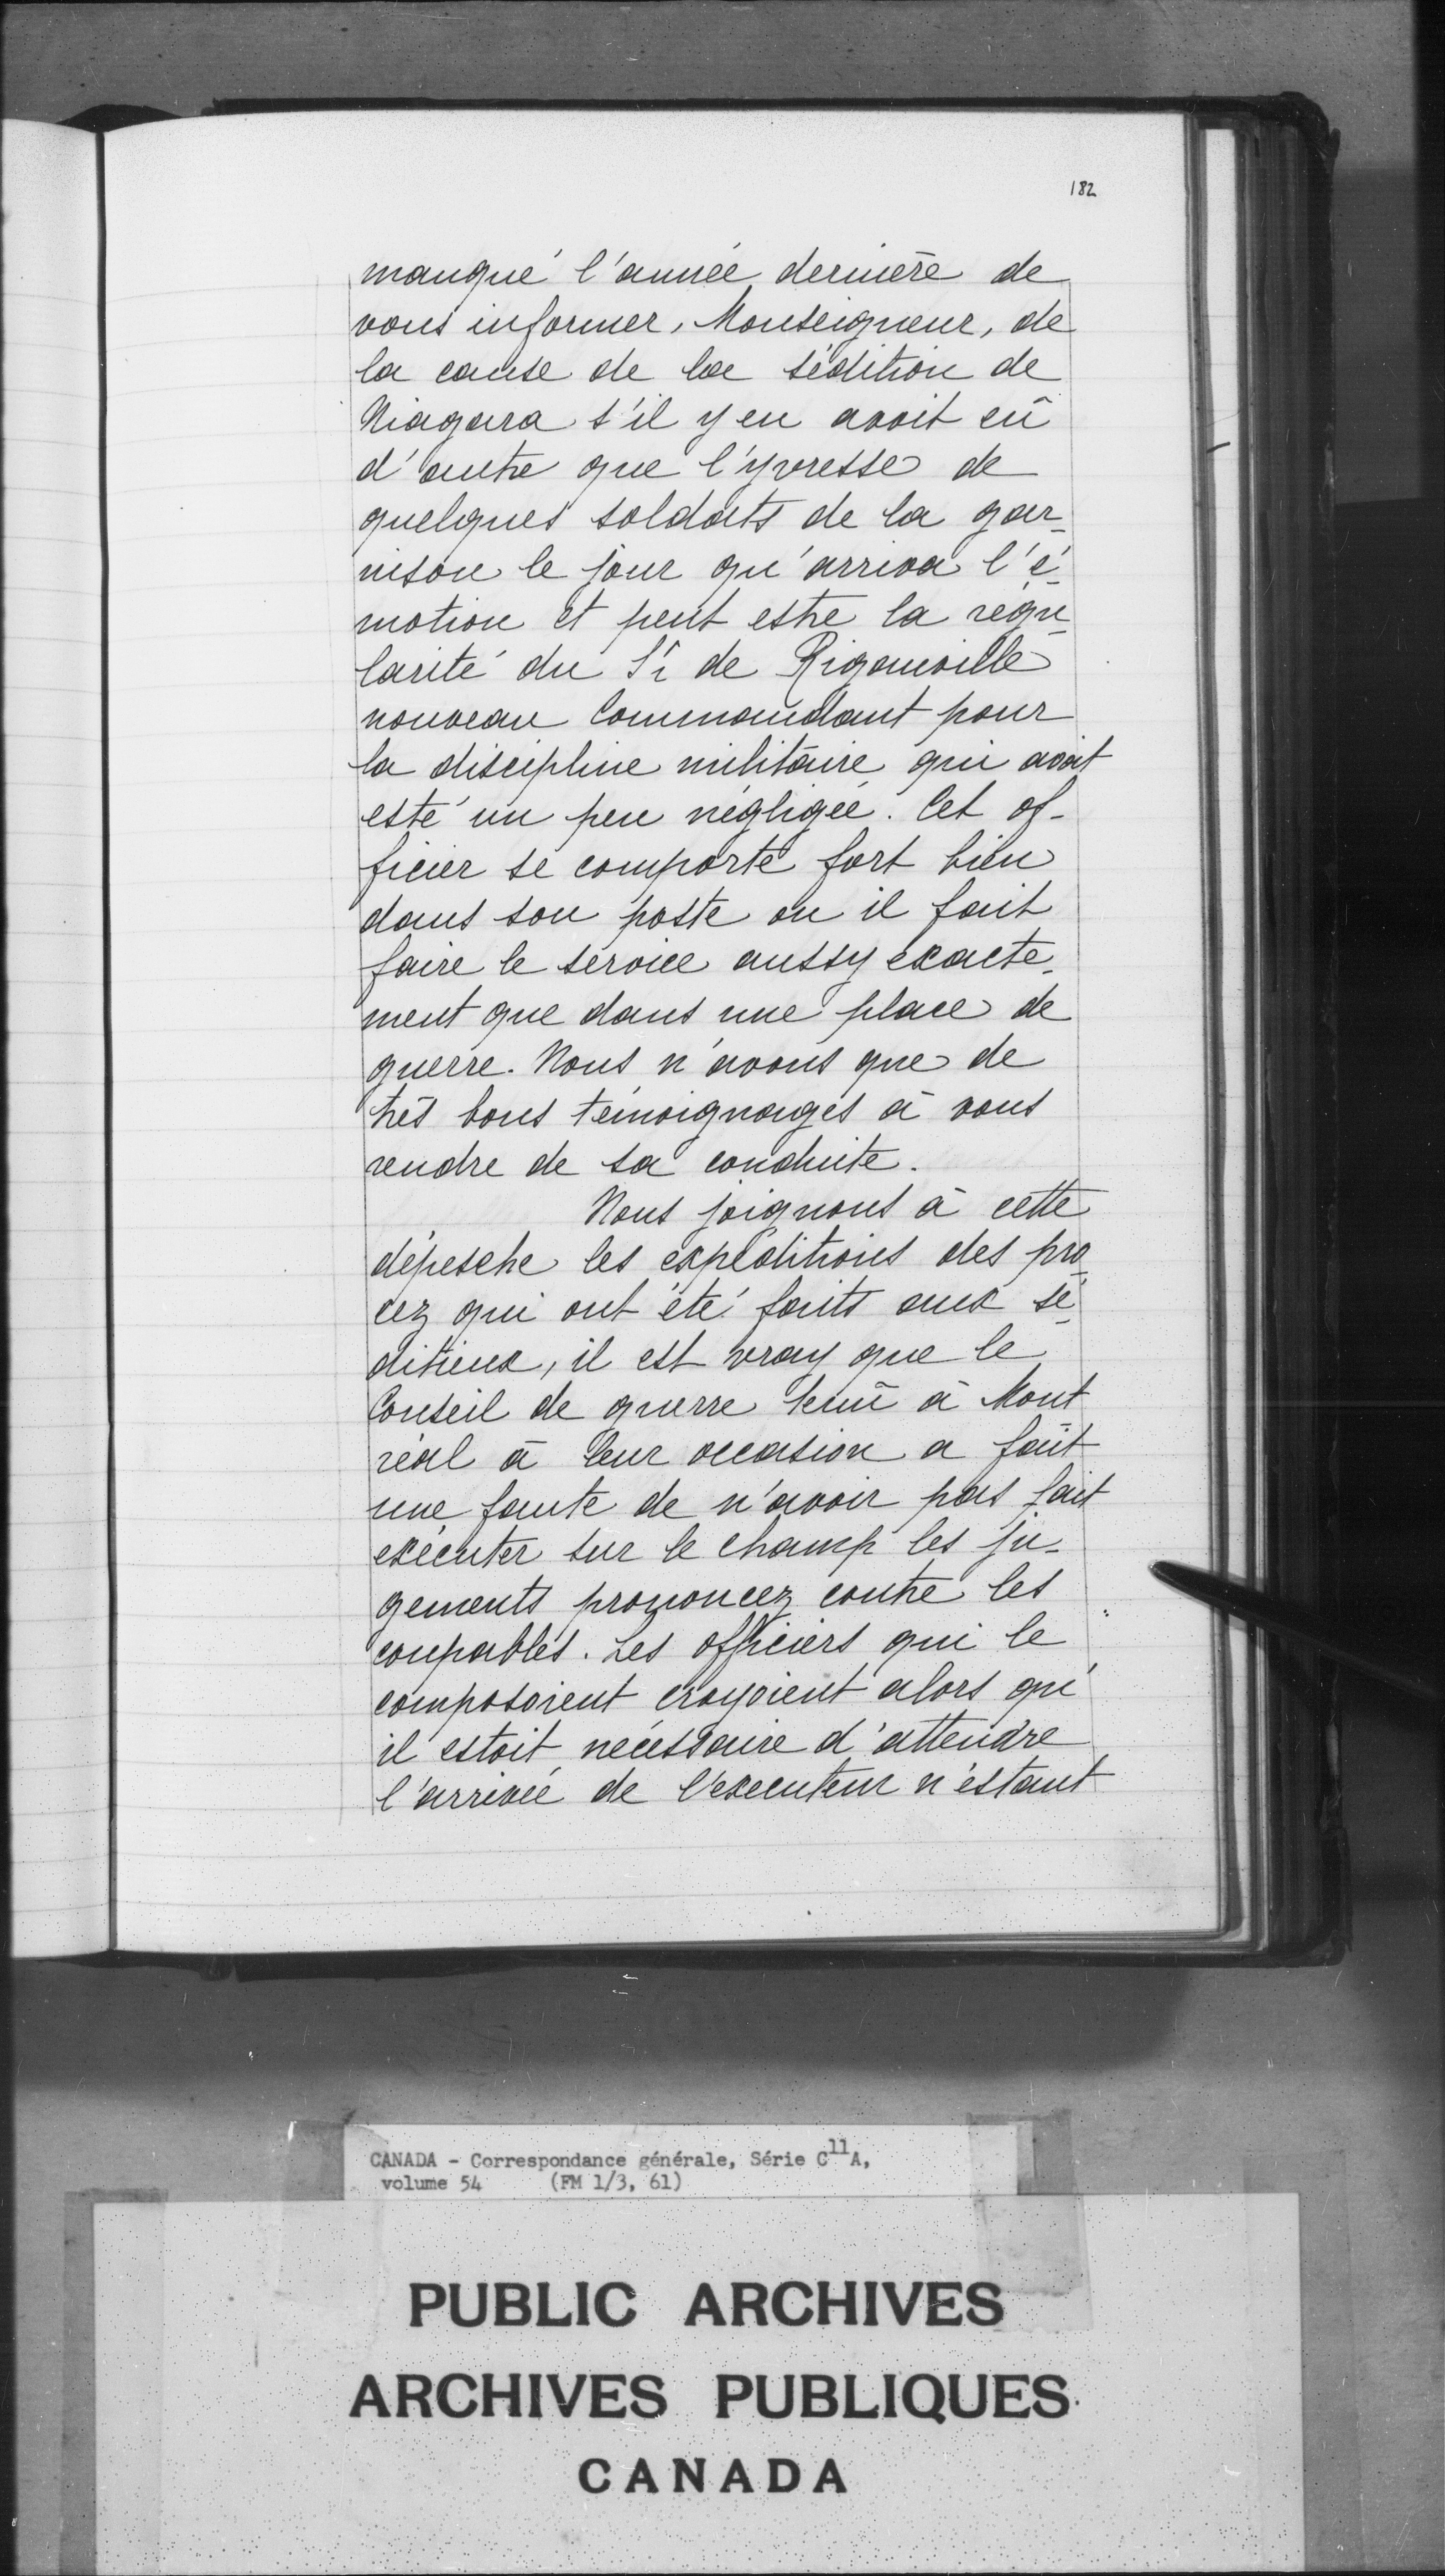 182
manqué l'année dernière de
vous informer, Monseigneur, de
la cause de la sédition de
Niagara s'il y en avoit eû
d'autre que l'yvresse de
quelques soldats de la gar-
nison le jour qu'arriva l'é-
motion et peut estre la régu-
larité du Sr de Rigauville
nouveau Commandant pour
la discipline militaire qui avoit
esté un peu négligée. Cet of-
ficier se comporte fort bien
dans son poste ou il fait
faire le service aussy exacte-
ment que dans une place de
guerre. Nous n'avons que de
très bons témoignages à vous
rendre de sa conduite.
Nous joignons à cette
dépesche les expéditions des pro-
cez qui ont été faits aux sé-
ditieux, il est vray que le
Conseil de guerre tenû à Mont
réal à leur occasion a fait
une faute de n'avoir pas fait
exécuter sur le champ les ju-
gements prononcez contre les
coupables. Les officiers qui le
composoient croyoient alors qu'
il estoit nécessaire d'attendre
l'arrivée de l'executeur n'estant
CANADA - Correspondance générale, Série C11A,
volume 54 (FM 1/3, 61)
PUBLIC ARCHIVES
ARCHIVES PUBLIQUES
CANADA